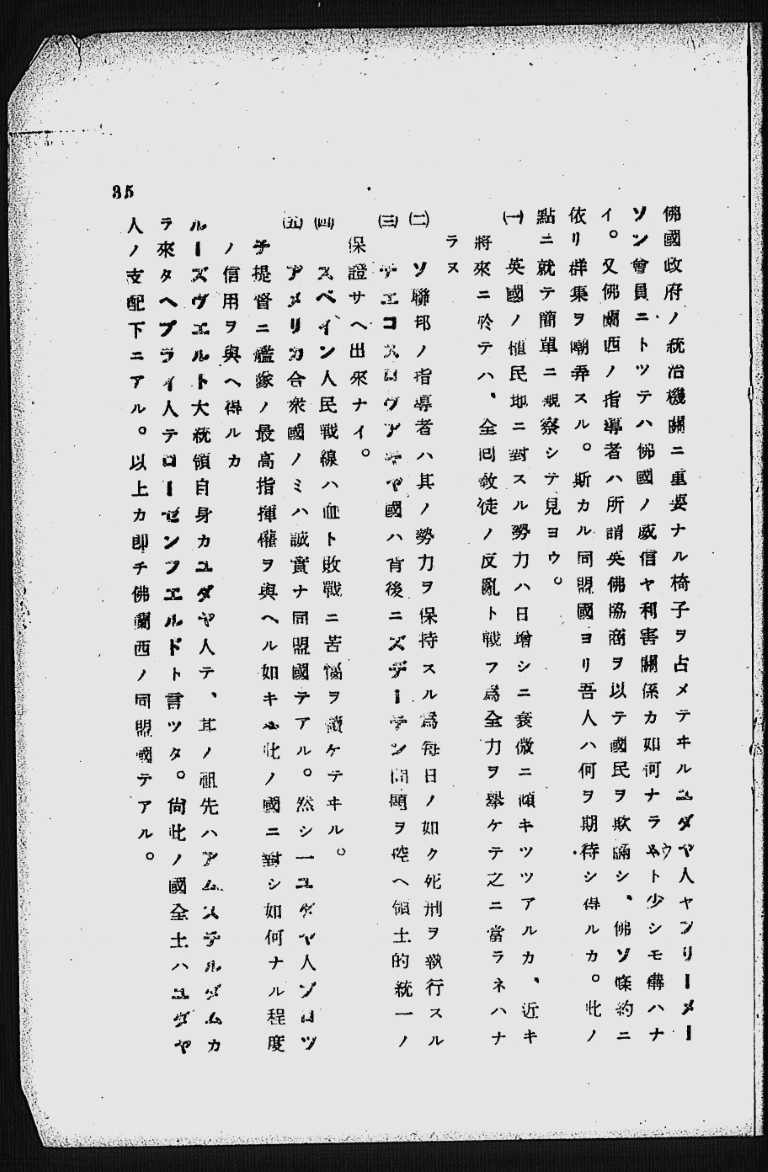 佛國政府ノ統治機關ニ重要ナル椅子ヲ占メテヰルユダヤ人ヤフリーメー
ソン會員ニトツテハ佛國ノ威信ヤ利害關係カ如何ナラウト少シモ構ハナ
イ。又佛蘭西ノ指導者ハ所謂英佛協商ヲ以テ國民ヲ欺瞞シ、佛ソ條約ニ
依リ群集ヲ嘲弄スル。斯カル同盟國ヨリ吾人ハ何ヲ期待シ得ルカ。此ノ
點ニ就テ簡單ニ觀察シテ見ヨウ。
㈠ 英國ノ植民地ニ對スル勢力ハ日增シニ衰微ニ傾キツツアルカ、近キ
將來ニ於テハ、全回敎徒ノ反亂ト戰フ爲全力ヲ擧ケテ之ニ當ラネハナ
ラヌ
㈡ ソ聯邦ノ指導者ハ其ノ勢力ヲ保持スル爲每日ノ如ク死刑ヲ執行スル
㈢ チエコスロヴアキヤ國ハ背後ニズデーテン問題ヲ控ヘ領土的統一ノ
保證サヘ出來ナイ。
㈣ スペイン人民戰線ハ血ト敗戰ニ苦惱ヲ續ケテヰル。
㈤ アメリカ合衆國ノミハ誠實ナ同盟國テアル。然シ一ユダヤ人ソロツ
チ提督ニ艦隊ノ最高指揮權ヲ與ヘル如キ此ノ國ニ對シ如何ナル程度
ノ信用ヲ與ヘ得ルカ
ルーズヴエルト大統領自身カユダヤ人テ、其ノ祖先ハアムステルダムカ
ラ來タヘブライ人テローゼンフエルドト言ツタ。尙此ノ國全土ハユダヤ
人ノ支配下ニアル。以上カ卽チ佛蘭西ノ同盟國テアル。
35